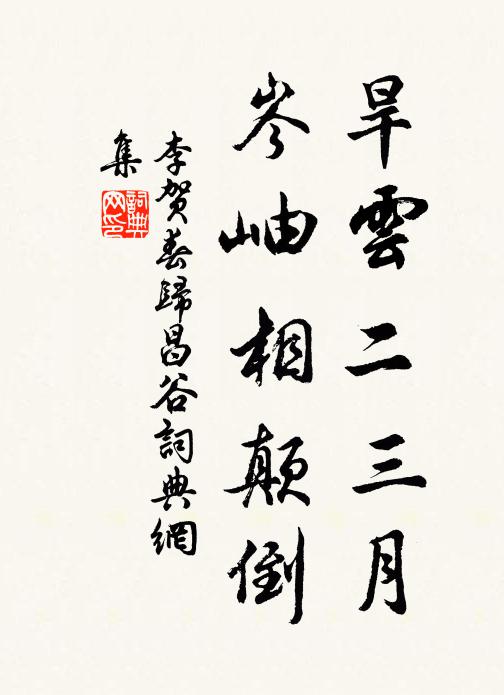 旱雲二三月
岑岫相顛倒
李賀春歸昌谷詞典網
集
詞典
网印